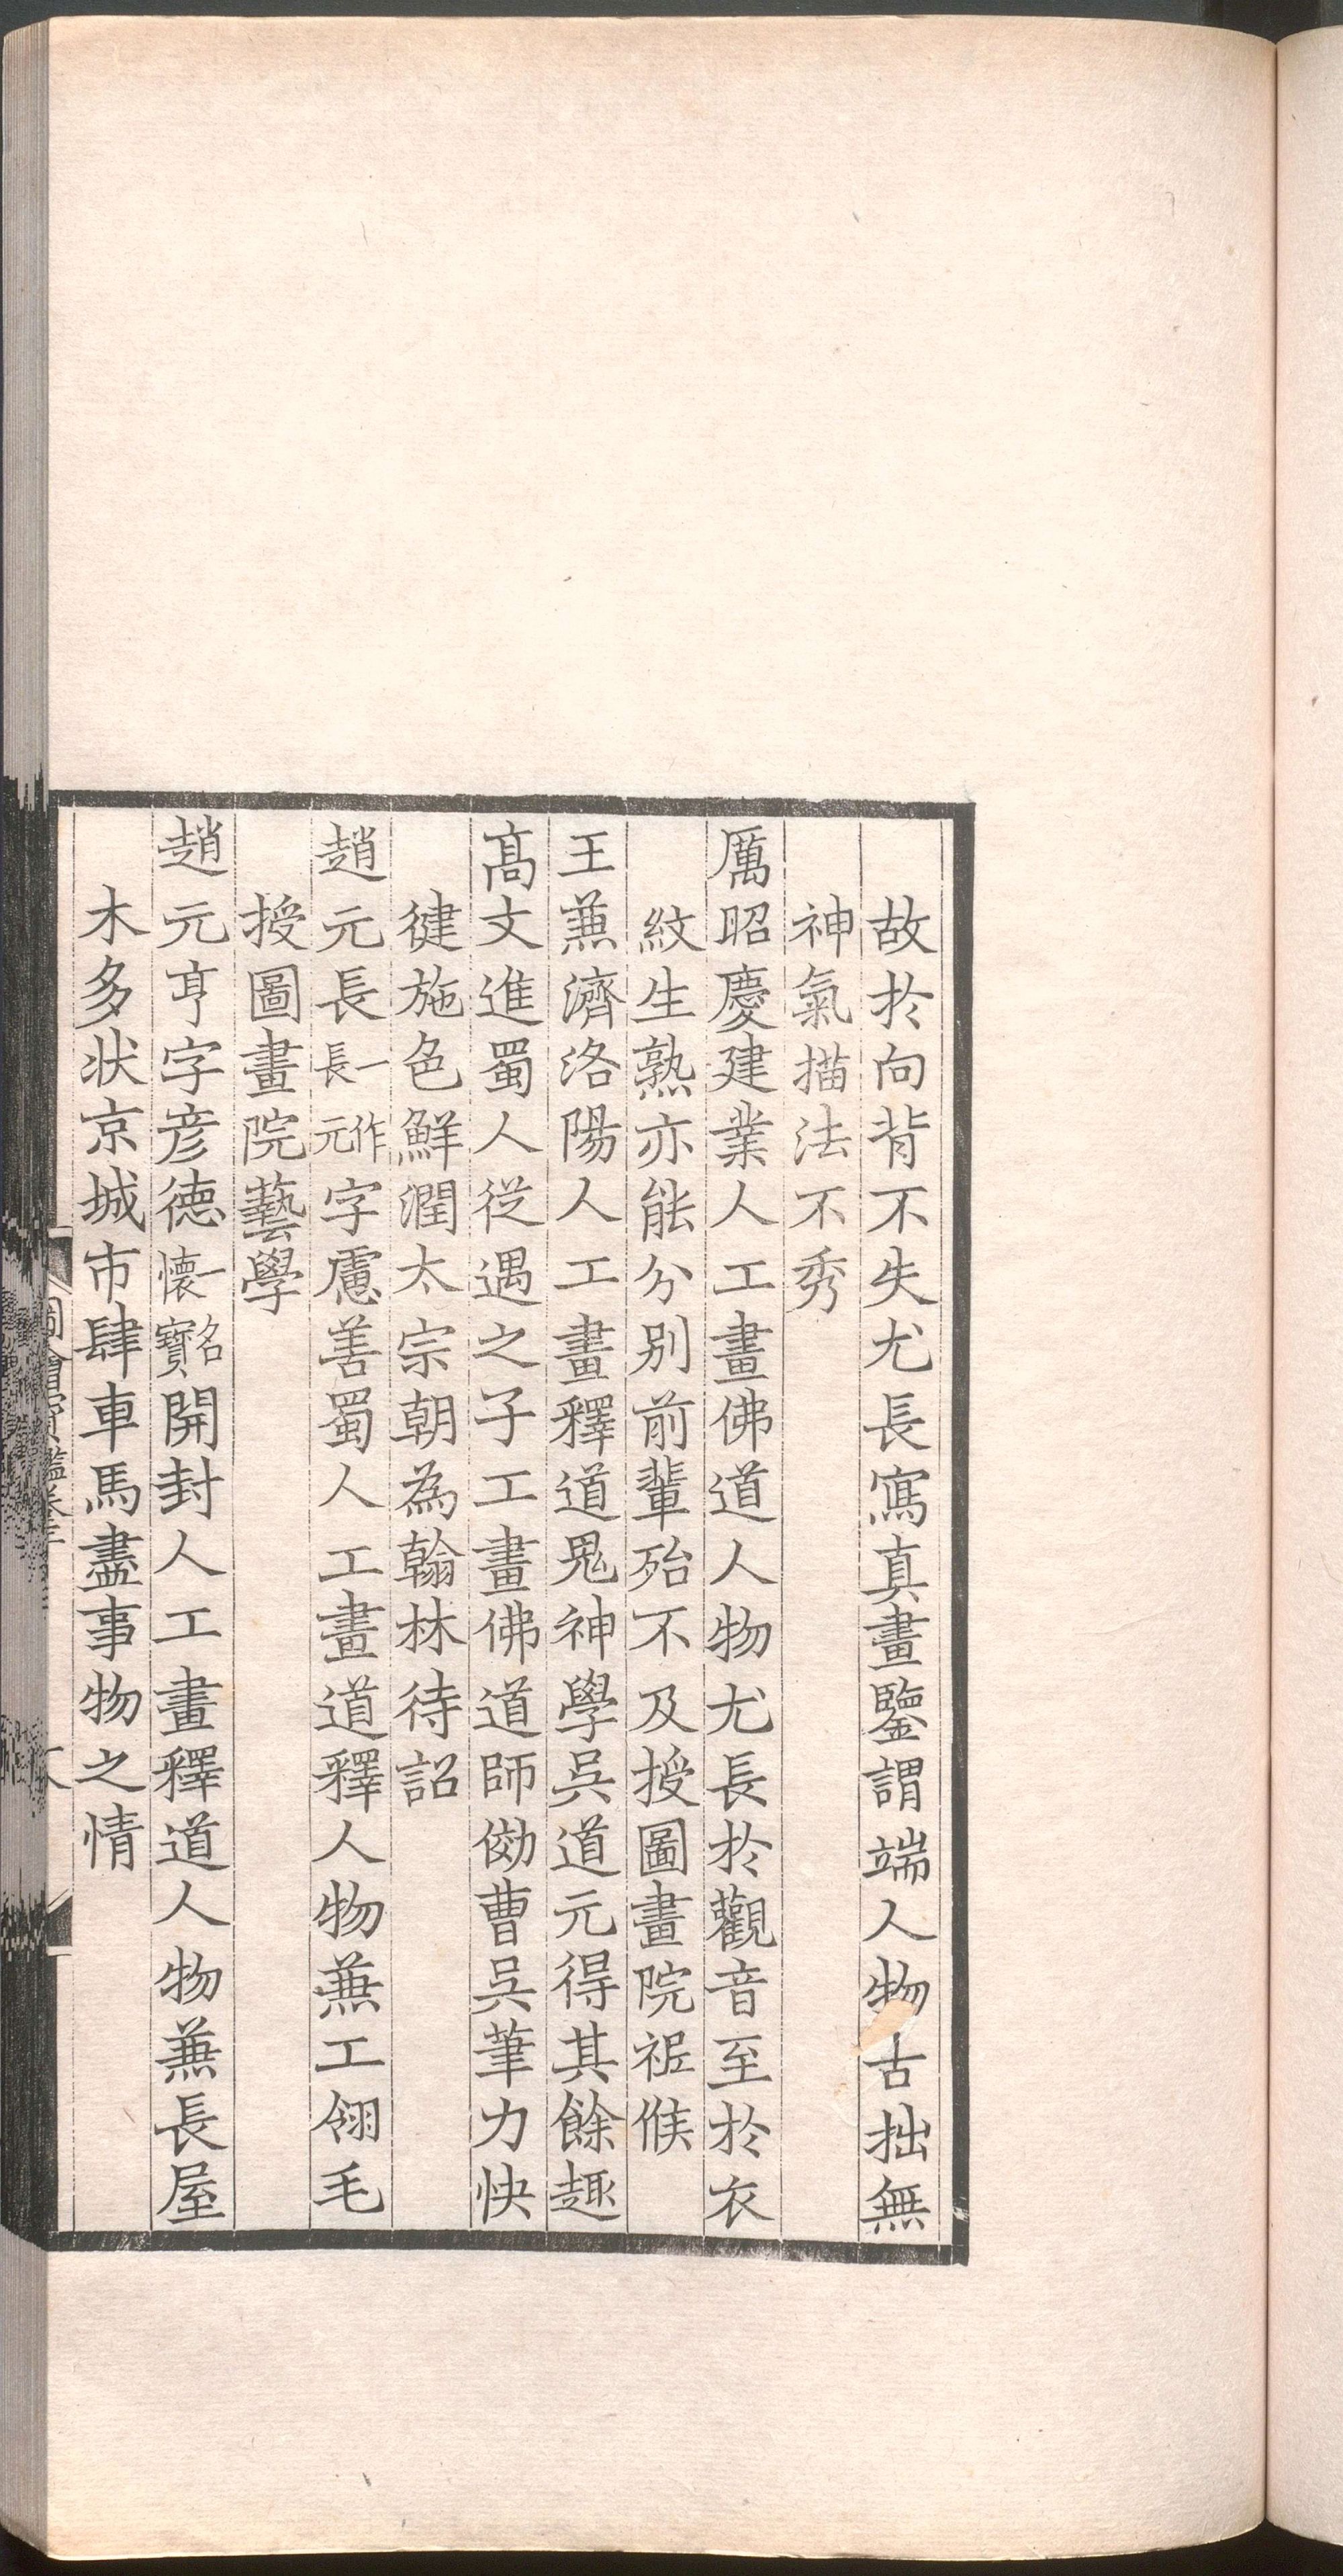 故扵向背不失尤長寫真畫鑒謂端人物古拙無
神氣描法不秀
厲昭慶建業人工畫佛道人物尤長扵觀音至扵衣
紋生熟亦能分別前輩殆不及授圖畫院祗候
王蒹濟洛陽人工畫釋道鬼神學吳道元得其餘趣
髙文進蜀人從遇之子工畫佛道師倣曹吳筆力快
徤施色鮮潤太宗朝為翰林待詔
趙元長一作長元字慮善蜀人工畫道釋人物蒹工翎毛
授圖畫院藝學
趙元亨字彦德一名懷寶開封人工畫釋道人物蒹長屋
木多状京城市肆車馬盡事物之情
圖繪寶鑑卷三